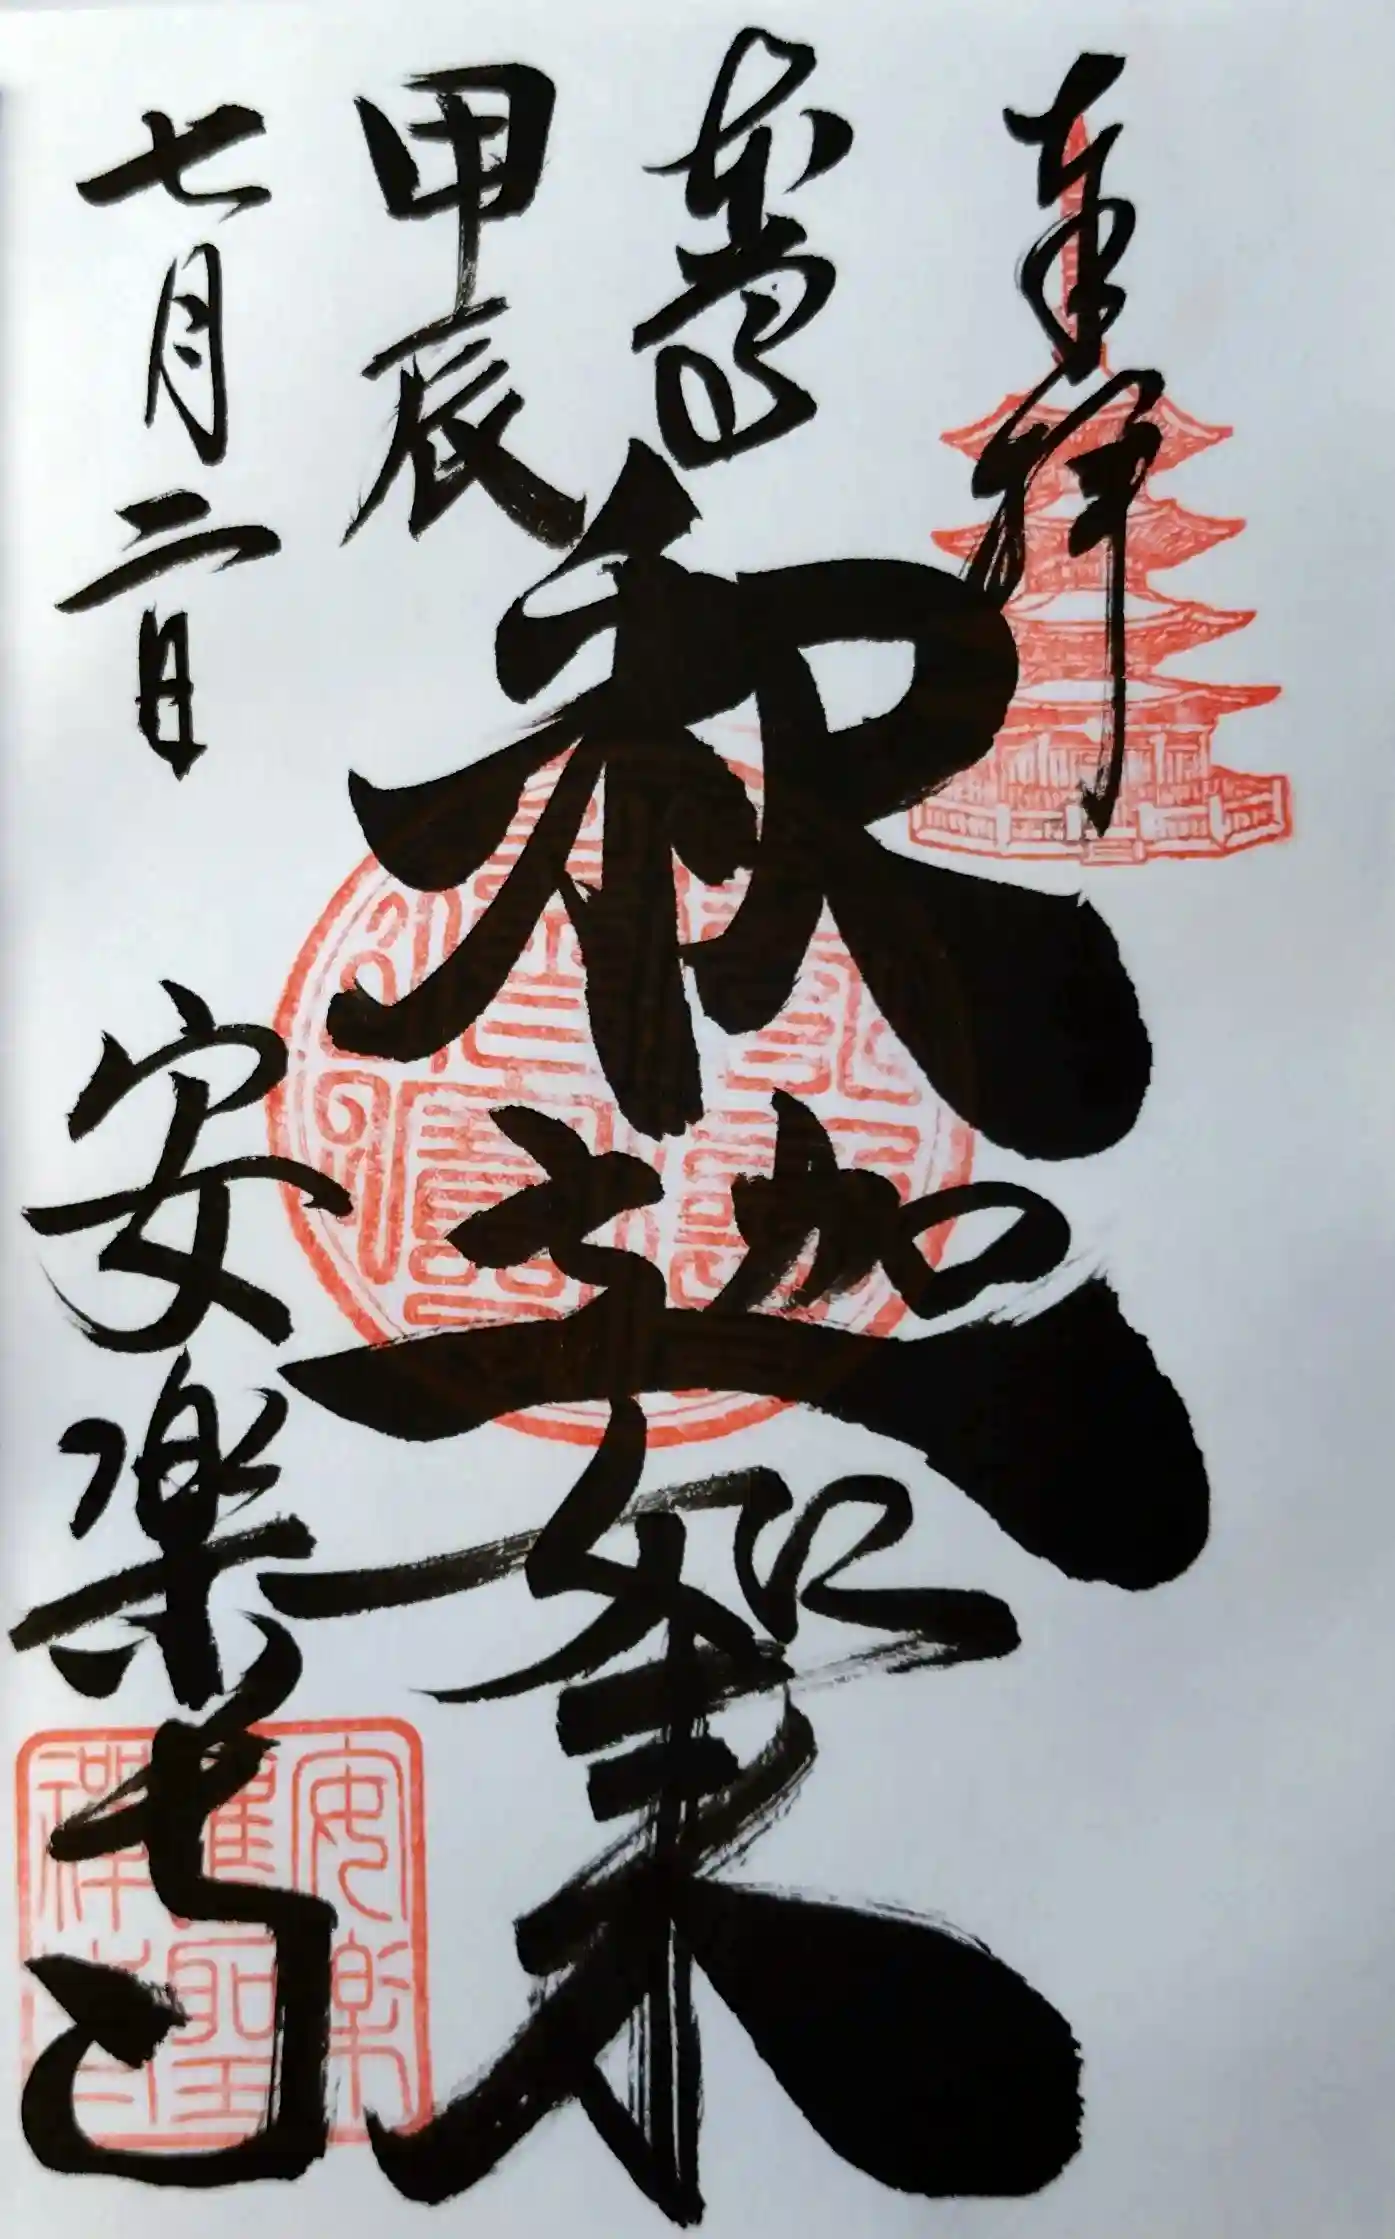 奉拝
釈迦如来
甲辰
七月二日
安楽寺
安楽
護聖
禅寺